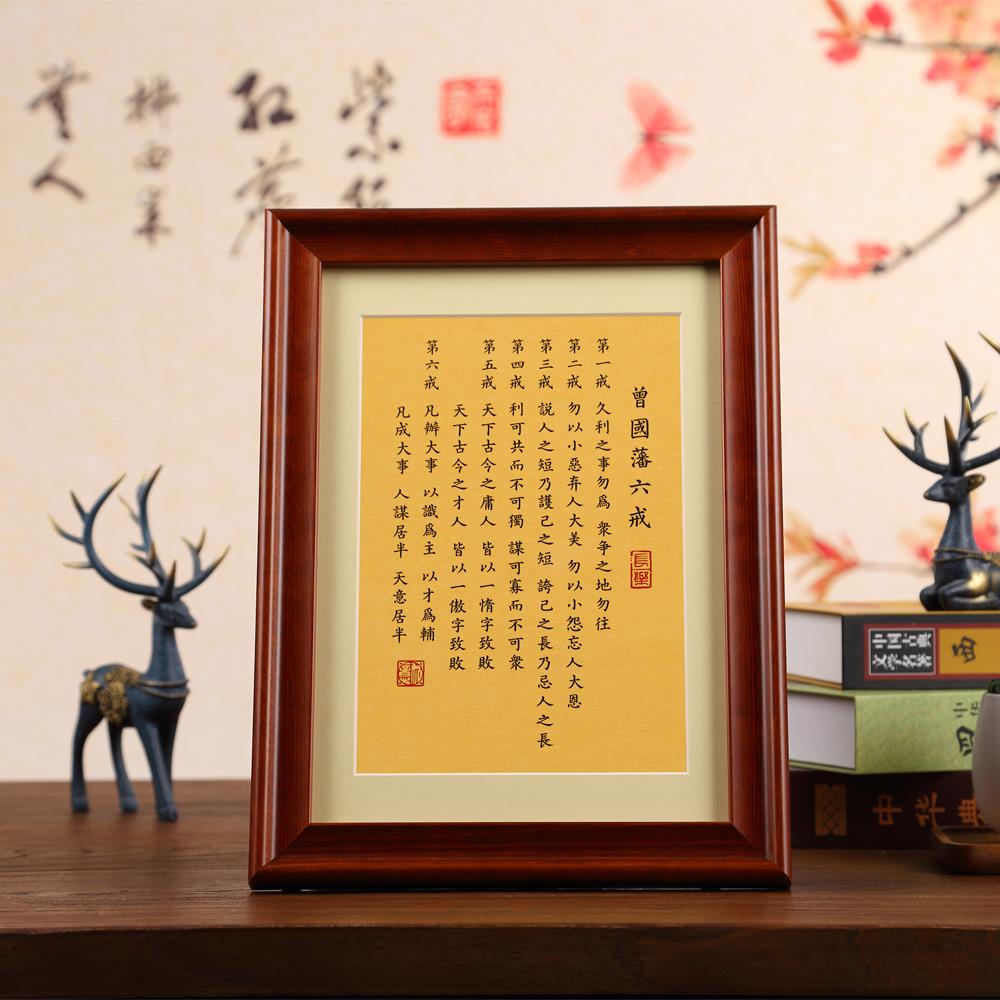 曾國藩六戒
長樂
第一戒 久利之事勿爲 衆争之地勿往
第二戒 勿以小惡弃人大美 勿以小怨忘人大恩
第三戒 説人之短乃護己之短 誇己之長乃忌人之長
第四戒 利可共而不可獨 謀可寡而不可衆
第五戒 天下古今之庸人 皆以一惰字致敗
天下古今之才人 皆以一傲字致敗
第六戒 凡辦大事 以識爲主 以才爲輔
凡成大事 人謀居半 天意居半
中国古典
文學名著
西
中华
四
中华典